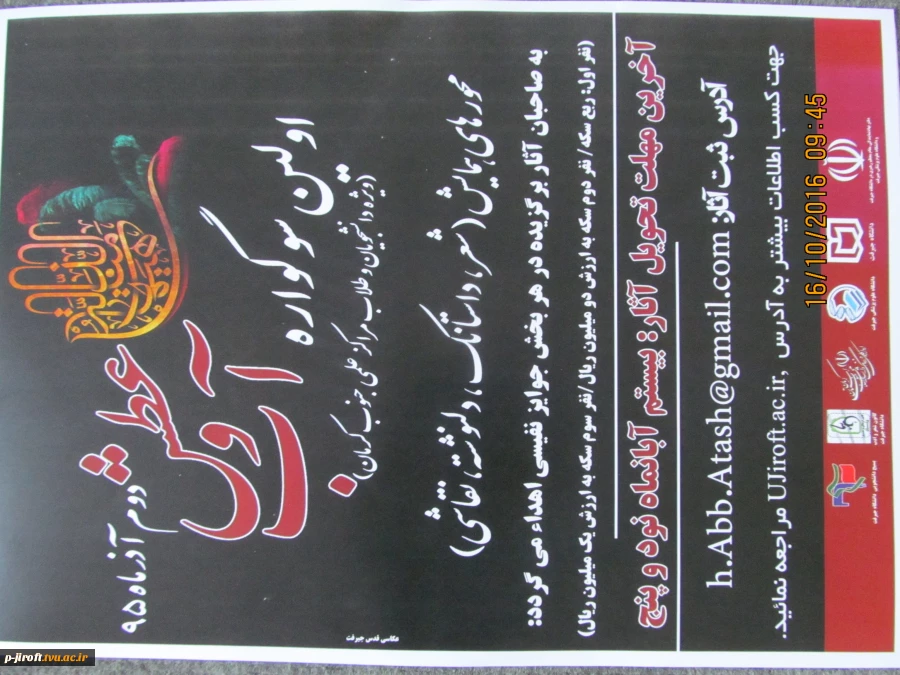 اولین سوگواره
آب و عطش
(ویژه دانشجویان و طلاب مراکز علمی جنوب کرمان)
دوم آذرماه ۹۵
محورهای همایش (شعر، داستانک، دلنوشته، نقاشی)
به صاحبان آثار برگزیده در هر بخش جوایز نفیسی اهداء می گردد:
(نفر اول: ربع سکه/ نفر دوم سکه به ارزش دو میلیون ریال/نفر سوم سکه به ارزش یک میلیون ریال)
آخرین مهلت تحویل آثار: بیستم آبانماه نود و پنج
آدرس ثبت آثار: h.Abb.Atash@gmail.com
جهت کسب اطلاعات بیشتر به آدرس UJiroft.ac.ir, مراجعه نمائید.
دانشگاه جیرفت
دانشگاه علوم پزشکی جیرفت
کانون شعر و ادب
دانشگاه جیرفت
بسیج دانشجویی دانشگاه جیرفت
عکاسی قدس جیرفت
16/10/2016 09:45
p-jiroft.tvu.ac.ir